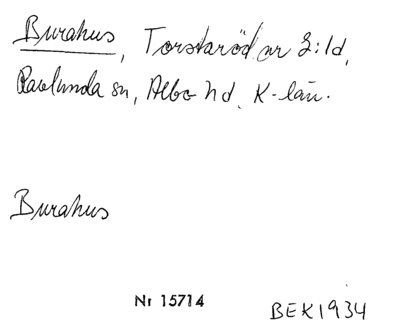 Burahus, Torstaröd nr 2:1d,
Ravlunda sn, Albo hd, K-län.
Burahus
Nr 15714
BEK1934